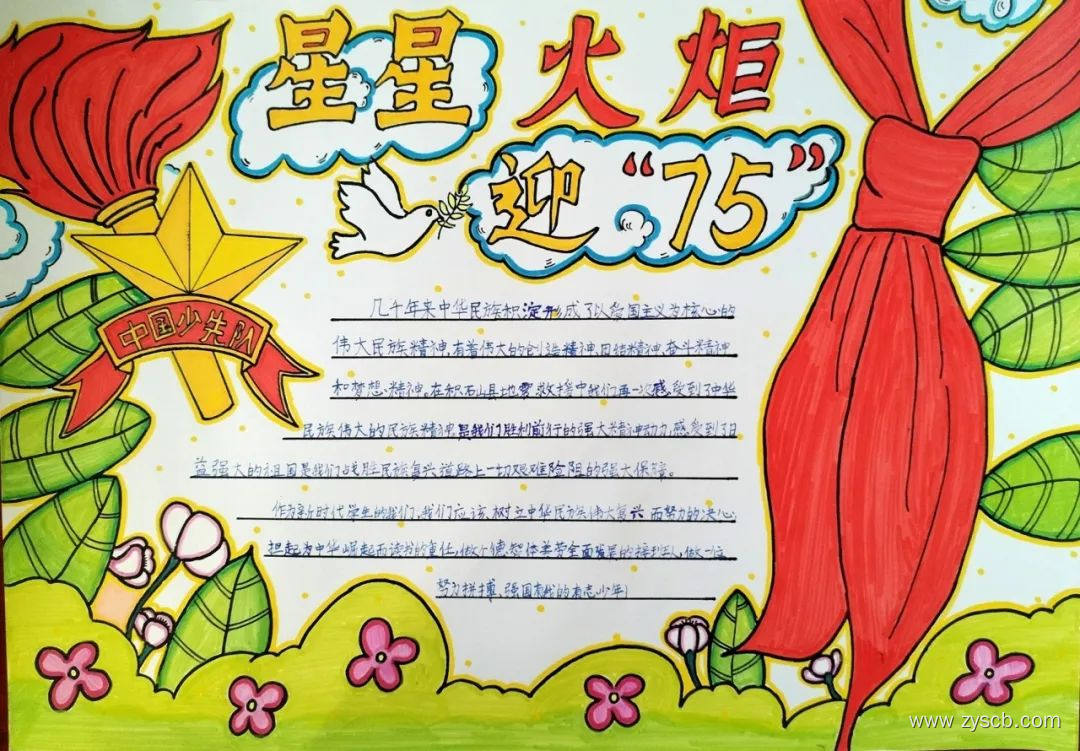 星星火炬
迎“75”
中国少先队
几千年来中华民族积淀形成了以爱国主义为核心的
伟大民族精神,有着伟大的创造精神、团结精神、奋斗精神
和梦想精神。在积石山县地震救援中我们再一次感受到了中华
民族伟大的民族精神是我们胜利前行的强大精神动力,感受到了日
益强大的祖国是我们战胜民族复兴道路上一切艰难险阻的强大保障。
作为新时代学生的我们,我们应该树立中华民族伟大复兴而努力的决心,
担起为中华崛起而读书的责任,做个德智体美劳全面发展的接班人,做一位
努力拼搏、强国有我的有志少年!
www.zyscb.com